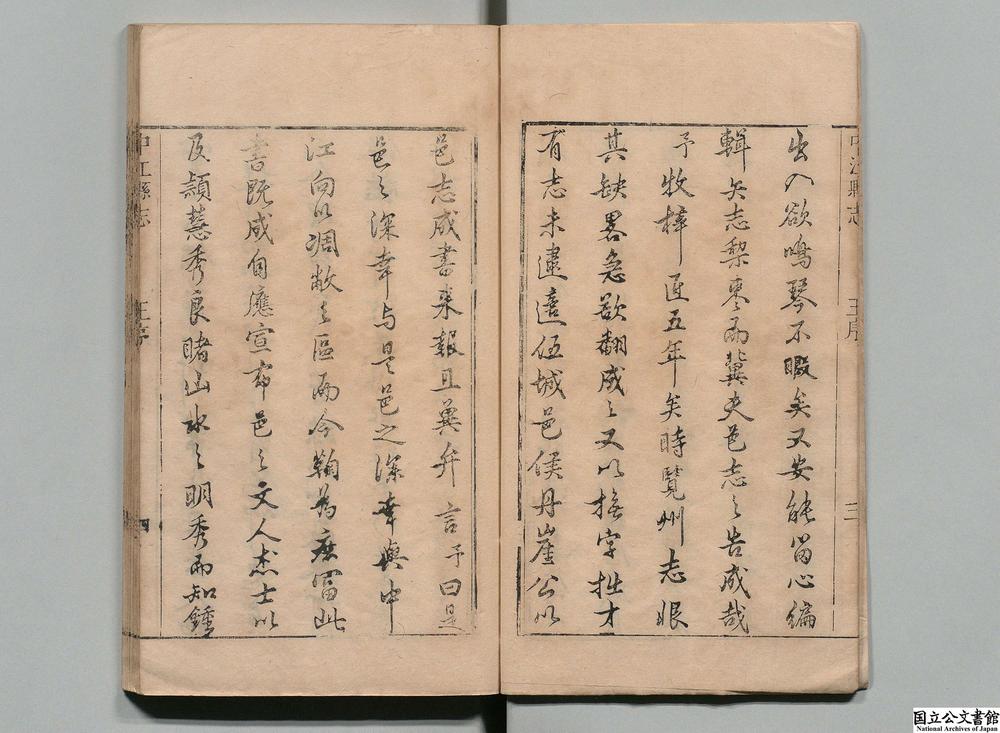 中江縣志 王序 三
出入欲鳴琴不暇矣又安能留心編
輯矣志梨棗而冀夫邑志之告成哉
予牧梓匝五年矣時覽州志恨
其缺畧急欲翻成之又以撫字拙才
有志未逮適伍城邑侯丹崖公以
邑志成書來報且冀弁言予曰是
邑之深幸与是邑之深幸與中
江向以凋敝之區而今鞠為庶富此
書既成自應宣布邑之文人杰士以
及穎慧秀良睹山水之明秀而知鍾
中江縣志 王序 四
国立公文書館
National Archives of Japan